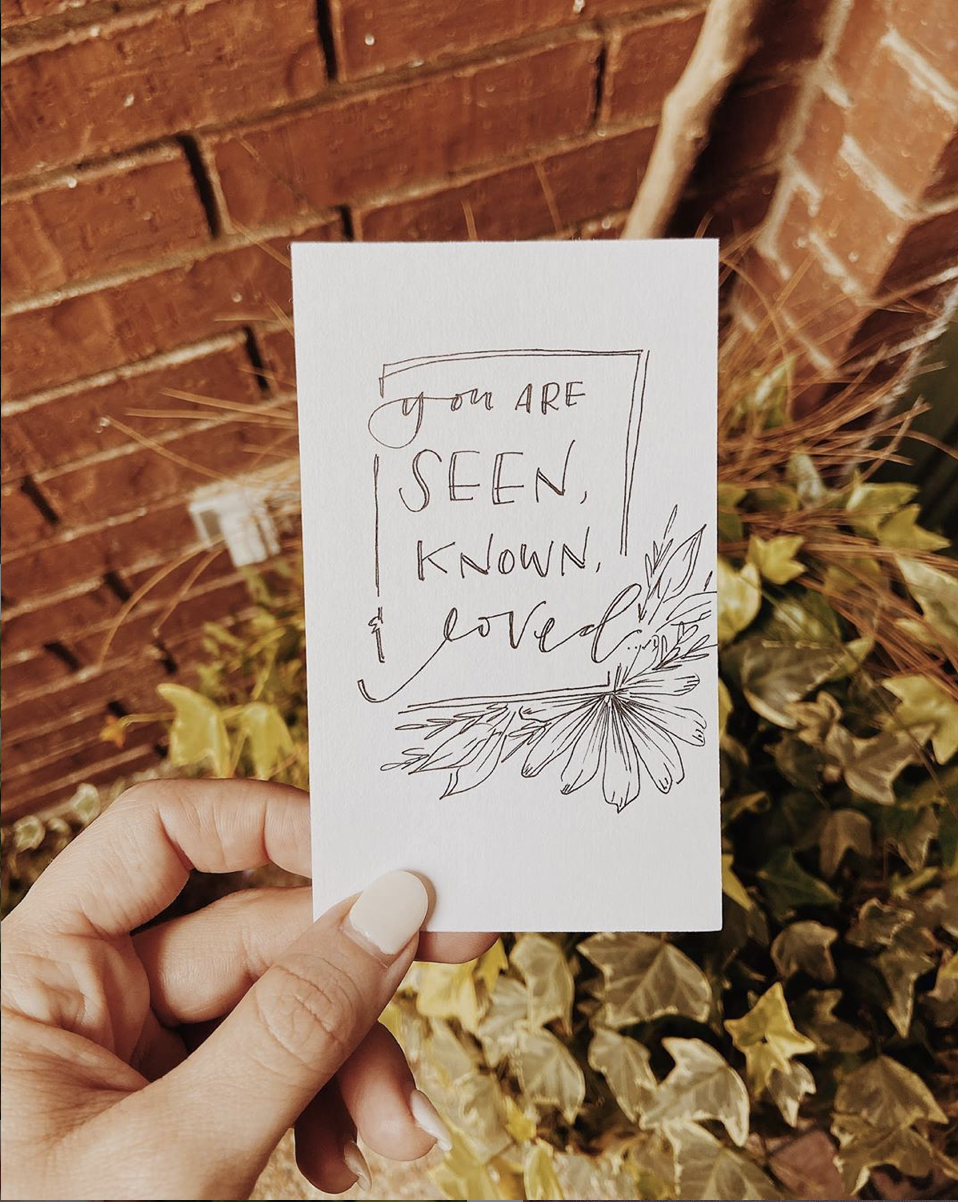 you ARE
SEEN,
KNOWN,
& loved